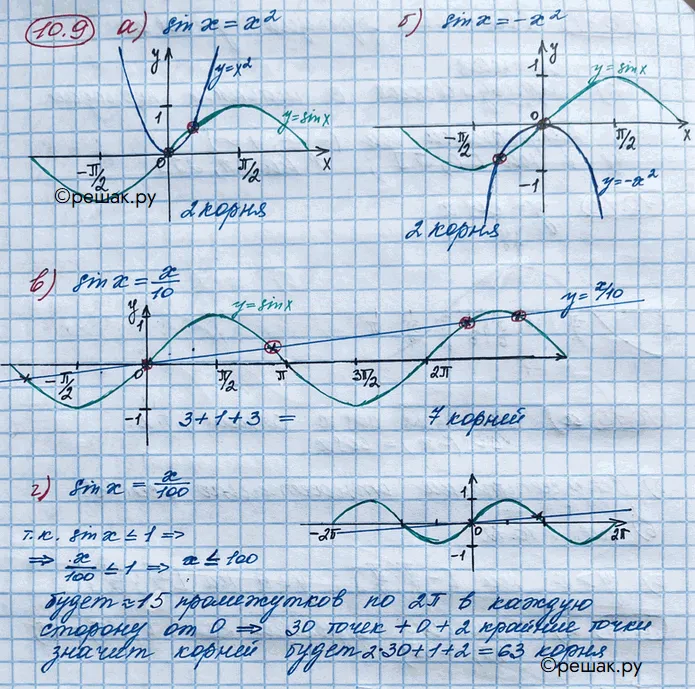 10.9 а) sin x = x² б) sin x = -x²
y y
y=x² 1 y=sin x
1 y=sin x 0
0 -π/2 π/2 x
-π/2 π/2 x -1 y=-x²
©решак.ру
2 корня 2 корня
в) sin x = x/10
y y=sin x y=x/10
1
-π/2 0 π/2 π 3π/2 2π
-1 3+1+3 = 7 корней
г) sin x = x/100
1
-2π 0 2π
-1
т.к. sin x ≤ 1 =>
=> x/100 ≤ 1 => x ≤ 100
будет ≈ 15 промежутков по 2π в каждую
сторону от 0 => 30 точек + 0 + 2 крайние точки
значит корней будет 2·30+1+2 = 63 корня
©решак.ру